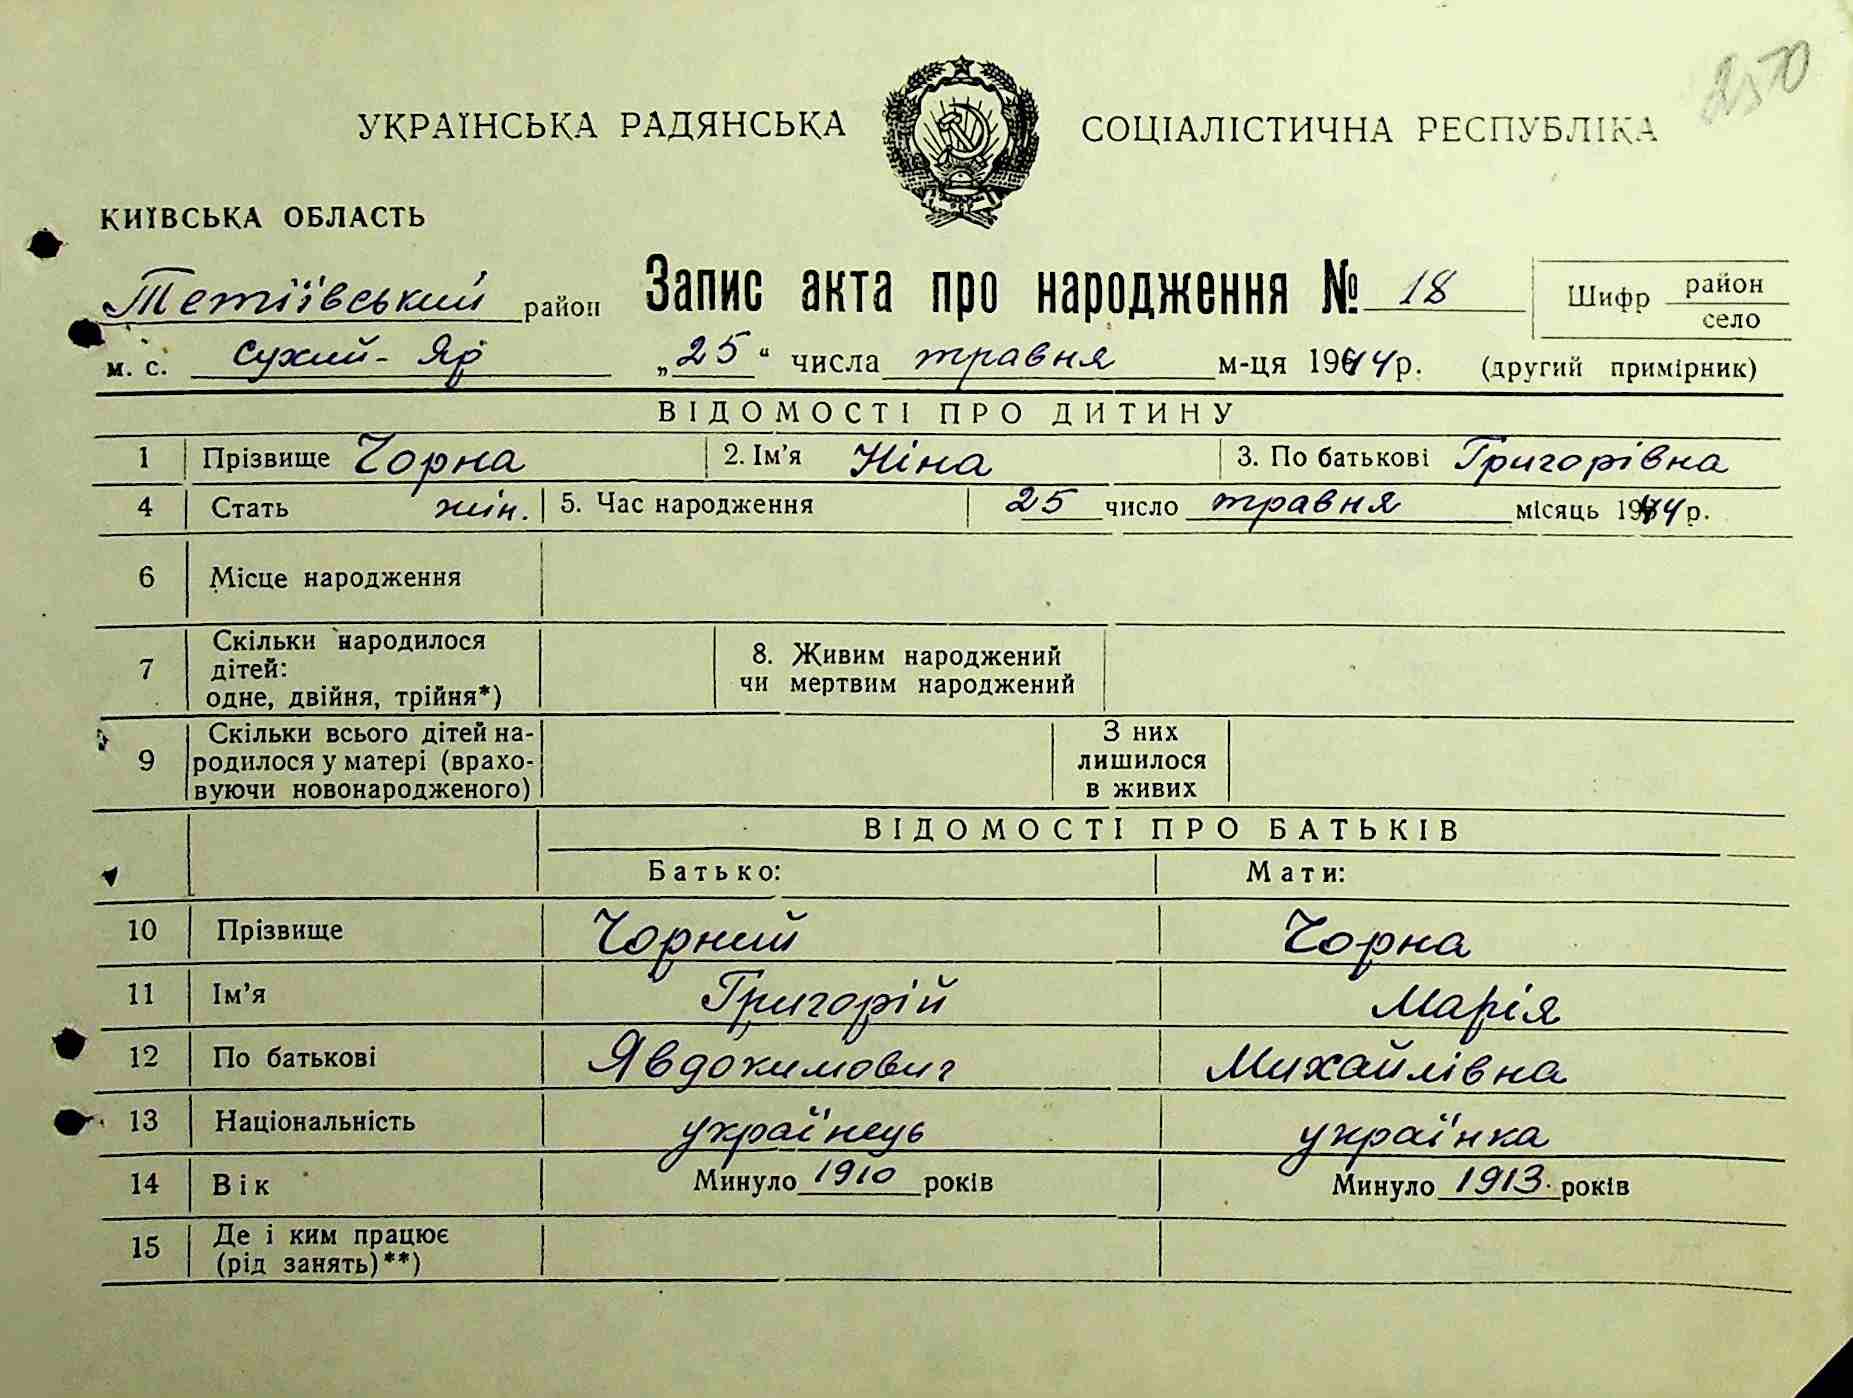 2570
УКРАЇНСЬКА РАДЯНСЬКА СОЦІАЛІСТИЧНА РЕСПУБЛІКА
КИЇВСЬКА ОБЛАСТЬ
Тетіївський район Запис акта про народження № 18 Шифр район село
м. с. Сухий-Яр „25“ числа травня м-ця 1944 р. (другий примірник)
ВІДОМОСТІ ПРО ДИТИНУ
1 Прізвище Чорна 2. Ім'я Ніна 3. По батькові Григорівна
4 Стать жін. 5. Час народження 25 число травня місяць 1944 р.
6 Місце народження
7 Скільки народилося дітей: одне, двійня, трійня*) 8. Живим народжений чи мертвим народжений
9 Скільки всього дітей народилося у матері (враховуючи новонародженого) З них лишилося в живих
ВІДОМОСТІ ПРО БАТЬКІВ
Батько: Мати:
10 Прізвище Чорний Чорна
11 Ім'я Григорій Марія
12 По батькові Явдокимович Михайлівна
13 Національність українець українка
14 Вік Минуло 1910 років Минуло 1913. років
15 Де і ким працює (рід занять)**)